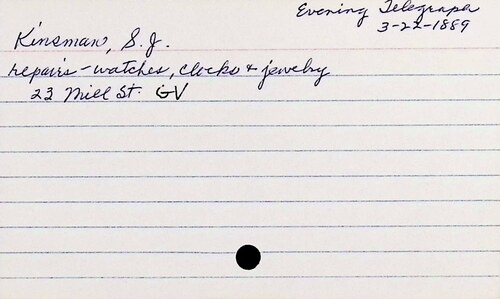 Evening Telegraph
3-22-1889
Kinsman, S. J.
repairs - watches, clocks & jewelry
23 Mill St. GV